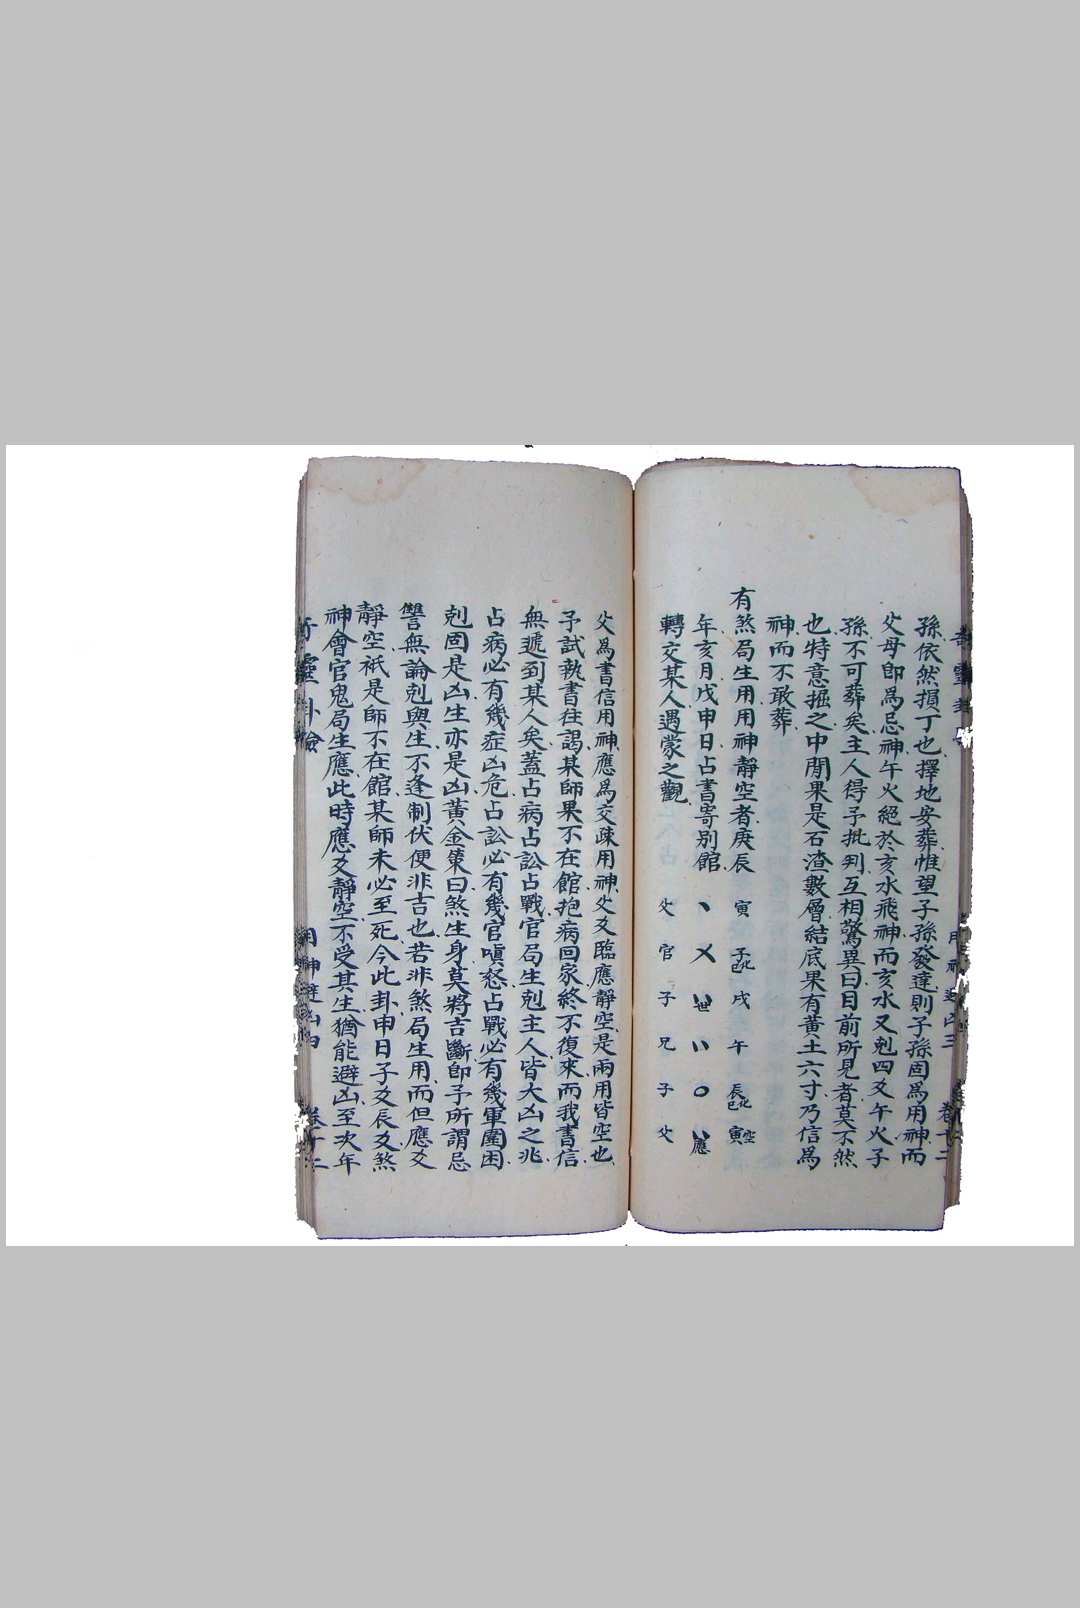 孫依然損丁也擇地安葬惟望子孫發達則子孫固為用神而
父母即為忌神午火絕於亥水飛神而亥水又剋四爻午火子
孫不可葬矣主人得予批判互相驚異曰目前所見者莫不然
也特意掘之中間果是石渣數層結底果有黃土六寸乃信為
神而不敢葬
有煞局生用用神靜空者庚辰
年亥月戊申日占書寄別館
轉交某人遇蒙之觀
寅 子化巳 戌 午 辰化巳 寅空
丶 乂 〃世 〃 〇 〃應
父 官 子 兄 子 父
父為書信用神應為交疎用神父爻臨應靜空是兩用皆空也
予試執書往謁某師果不在館抱病回家終不復來而我書信
無遞到某人矣蓋占病占訟占戰官局生剋主人皆大凶之兆
占病必有幾症凶危占訟必有幾官嗔怒占戰必有幾軍圍困
剋固是凶生亦是凶黃金策曰煞生身莫將吉斷即予所謂忌
讐無論剋與生不逢制伏便非吉也若非煞局生用而但應爻
靜空衹是師不在館某師未必至死今此卦申日子爻辰爻煞
神會官鬼局生應此時應爻靜空不受其生猶能避凶至次年
靈卦
用神避凶四